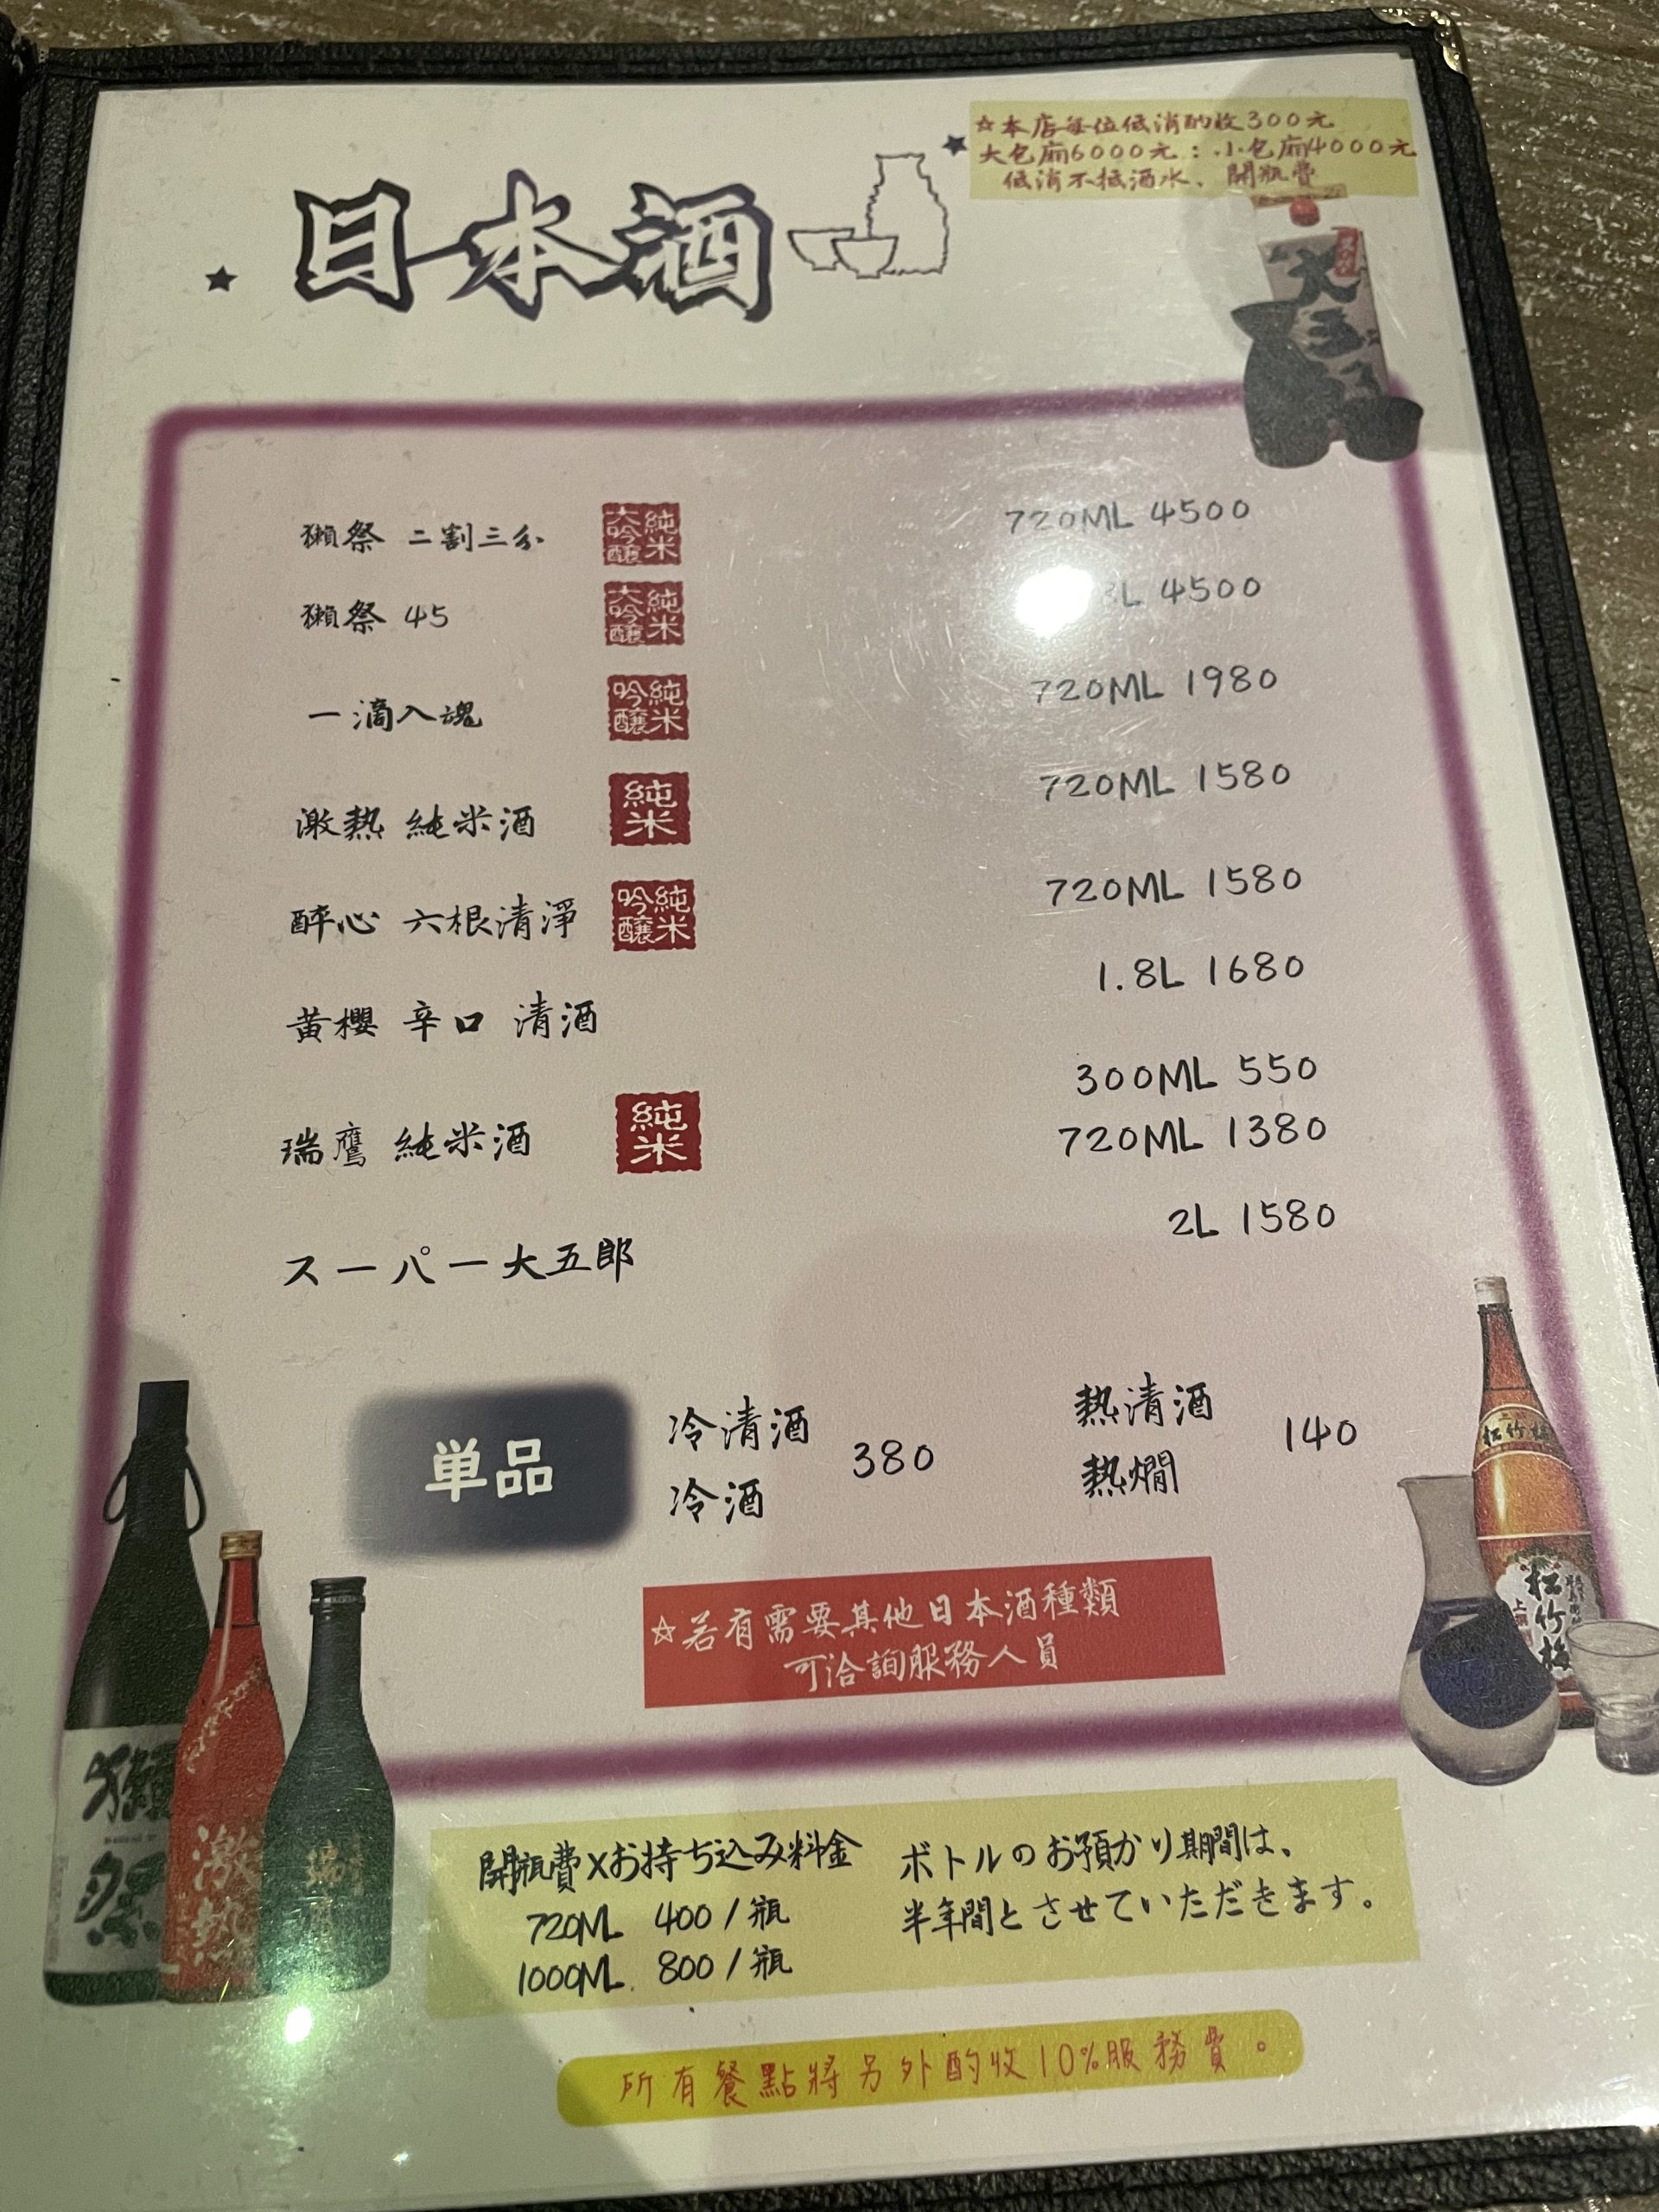 ☆本店每位低消酌收300元
大包廂6000元：小包廂4000元
低消不抵酒水、開瓶費
日本酒
大五
獺祭 二割三分 純米大吟醸 720ML 4500
獺祭 45 純米大吟醸 8L 4500
一滴入魂 純米吟醸 720ML 1980
激熱 純米酒 純米 720ML 1580
醉心 六根清淨 純米吟醸 720ML 1580
黄櫻 辛口 清酒 1.8L 1680
300ML 550
瑞鷹 純米酒 純米 720ML 1380
スーパー大五郎 2L 1580
単品
冷清酒
冷酒
380
熱清酒
熱燗
140
☆若有需要其他日本酒種類
可洽詢服務人員
松竹梅
上撰
松竹梅
獺祭
激熱
瑞鷹
開瓶費Xお持ち込み料金
720ML 400/瓶
1000ML 800/瓶
ボトルのお預かり期間は、
半年間とさせていただきます。
所有餐點將另外酌收10%服務費。